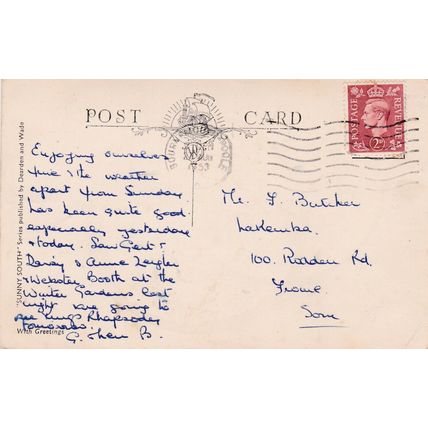 POST CARD
BOURNEMOUTH POOLE
1953
POSTAGE
REVENUE
"SUNNY SOUTH" Series published by Dearden and Wade
With Greetings
Enjoying ourselves
fine & the weather
apart from Sunday
has been quite good
especially yesterday
& today. Saw Gert &
Daisy & Anne Zeigler
& Webster Booth at the
Winter Gardens last
night & are going to
see Kings Rhapsody
tomorrow.
G. B.
Mr. F. Butcher
Lakemba
100. Rodden Rd.
Frome
Som